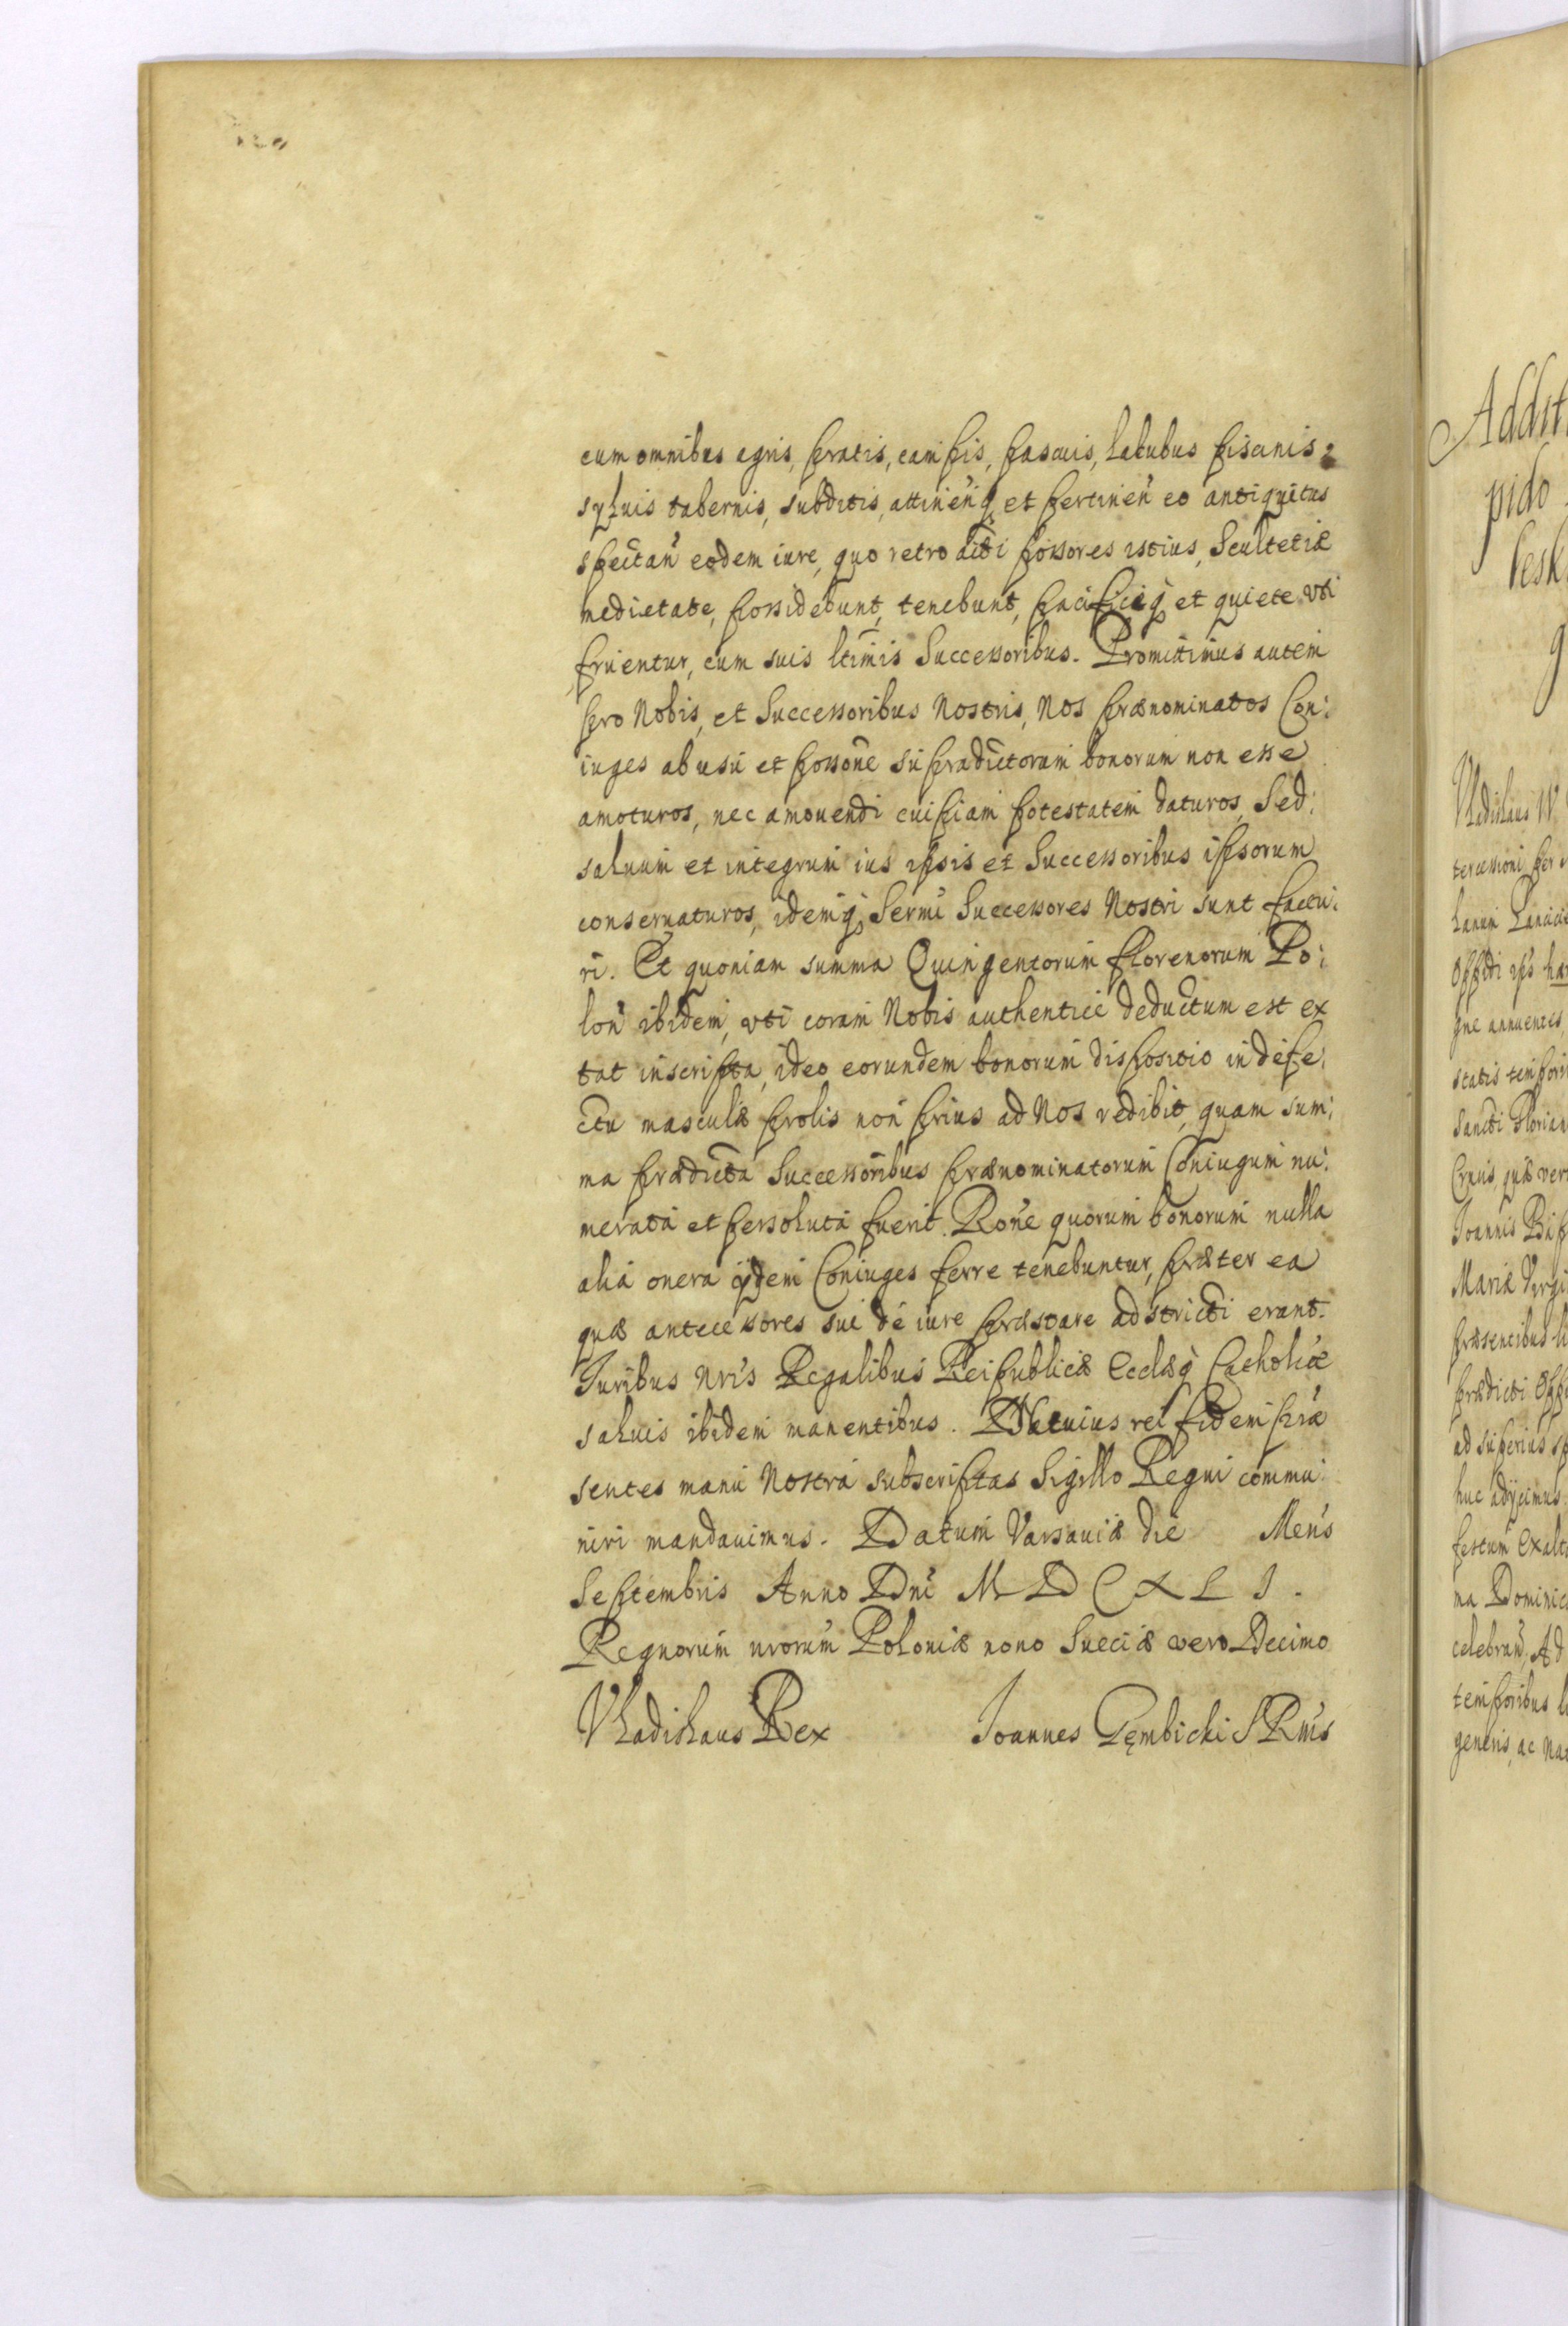 cum omnibus agris, pratis, campis, pascuis, lacubus piscinis,
syluis tabernis, subditis, attinen̄q₃ et pertinen̄ eo antiquitus
spectan̄ eodem iure, quo retro dicti possores istius, Scultetiæ
medietate, possidebunt, tenebunt, pacificeq₃ et quiete vti
fruentur, cum suis ltimis Successoribus. Promittimus autem
pro Nobis, et Successoribus Nostris, Nos prænominatos Con:
iuges ab usu et possōne supradictorum bonorum non esse
amoturos, nec amouendi cuipiam potestatem daturos, Sed:
saluum et integrum ius ipsis et Successoribus ipsorum
conseruaturos, idemq₃ Sermi Successores Nostri sunt factu:
ri. Et quoniam summa Quingentorum florenorum Po:
lon̄ ibidem, vti coram Nobis authentice deductum est ex
tat inscripta, ideo eorundem bonorum dispositio in defe:
ctu masculæ prolis non prius ad Nos redibit, quam sum:
ma prædicta Successoribus prænominatorum Coniugum nu:
merata et persoluta fuerit. Rōne quorum bonorum nulla
alia onera ijdem Coniuges ferre tenebuntur, præter ea
quæ antecessores sui de iure præstare adstricti erant.
Iuribus nris Regalibus Reipublicæ Ecclæq₃ Catholicæ
saluis ibidem manentibus. In cuius rei fidem præ
sentes manu Nostra subscriptas Sigillo Regni commu:
niri mandauimus. Datum Varsauiæ die Mens
Septembris Anno Dni M D C X L I.
Regnorum nrorum Poloniæ nono Sueciæ vero Decimo
Vladislaus Rex Joannes Gembicki S Rnis
Addit
pido
lesk
g
Vladislaus IV
tercessioni per
lanum Lancici
Oppidi ips ha
gne annuentes,
statis tempori
Sancti Florian
Crucis, quæ ver
Joannis Bap
Mariæ Virgi
præsentibus li
prædicti Opp
ad superius sp
huc adijcimus
festum Exalt
ma Dominic
celebran̄, Ad
temporibus l
generis, ac na